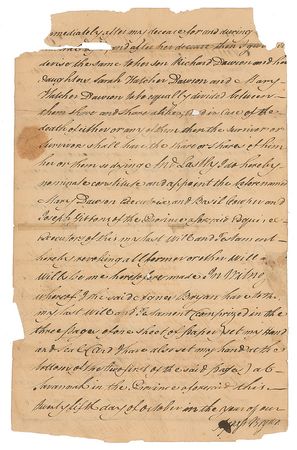 immediately after my decease for and during
and after her decease then I give
devise the same to her son Richard Dawson and her
daughters Sarah Hatcher Dawson and Mary
Hatcher Dawson to be equally divided between
them share and share alike, and in case of the
death of either or any of them then the survivor or
survivors shall have the share or shares of him
her or them so dying And Lastly I do hereby
nominate constitute and appoint the aforenamed
Mary Dawson Executrix and Basil Cowper and
Joseph Gibbons of the Province aforesaid Esquires
Executors of this my last Will and Testament
hereby revoking all former or other Will or
Wills by me heretofore made In Witness
whereof I the said Agnes Bryan have to this
my last Will and Testament (comprized in the
three pages of one sheet of paper) set my Hand
and Seal (and I have also set my hand at the
bottom of the two first of the said pages) at
Savannah in the Province aforesaid this
twenty fifth day of October in the year of our
Bryan